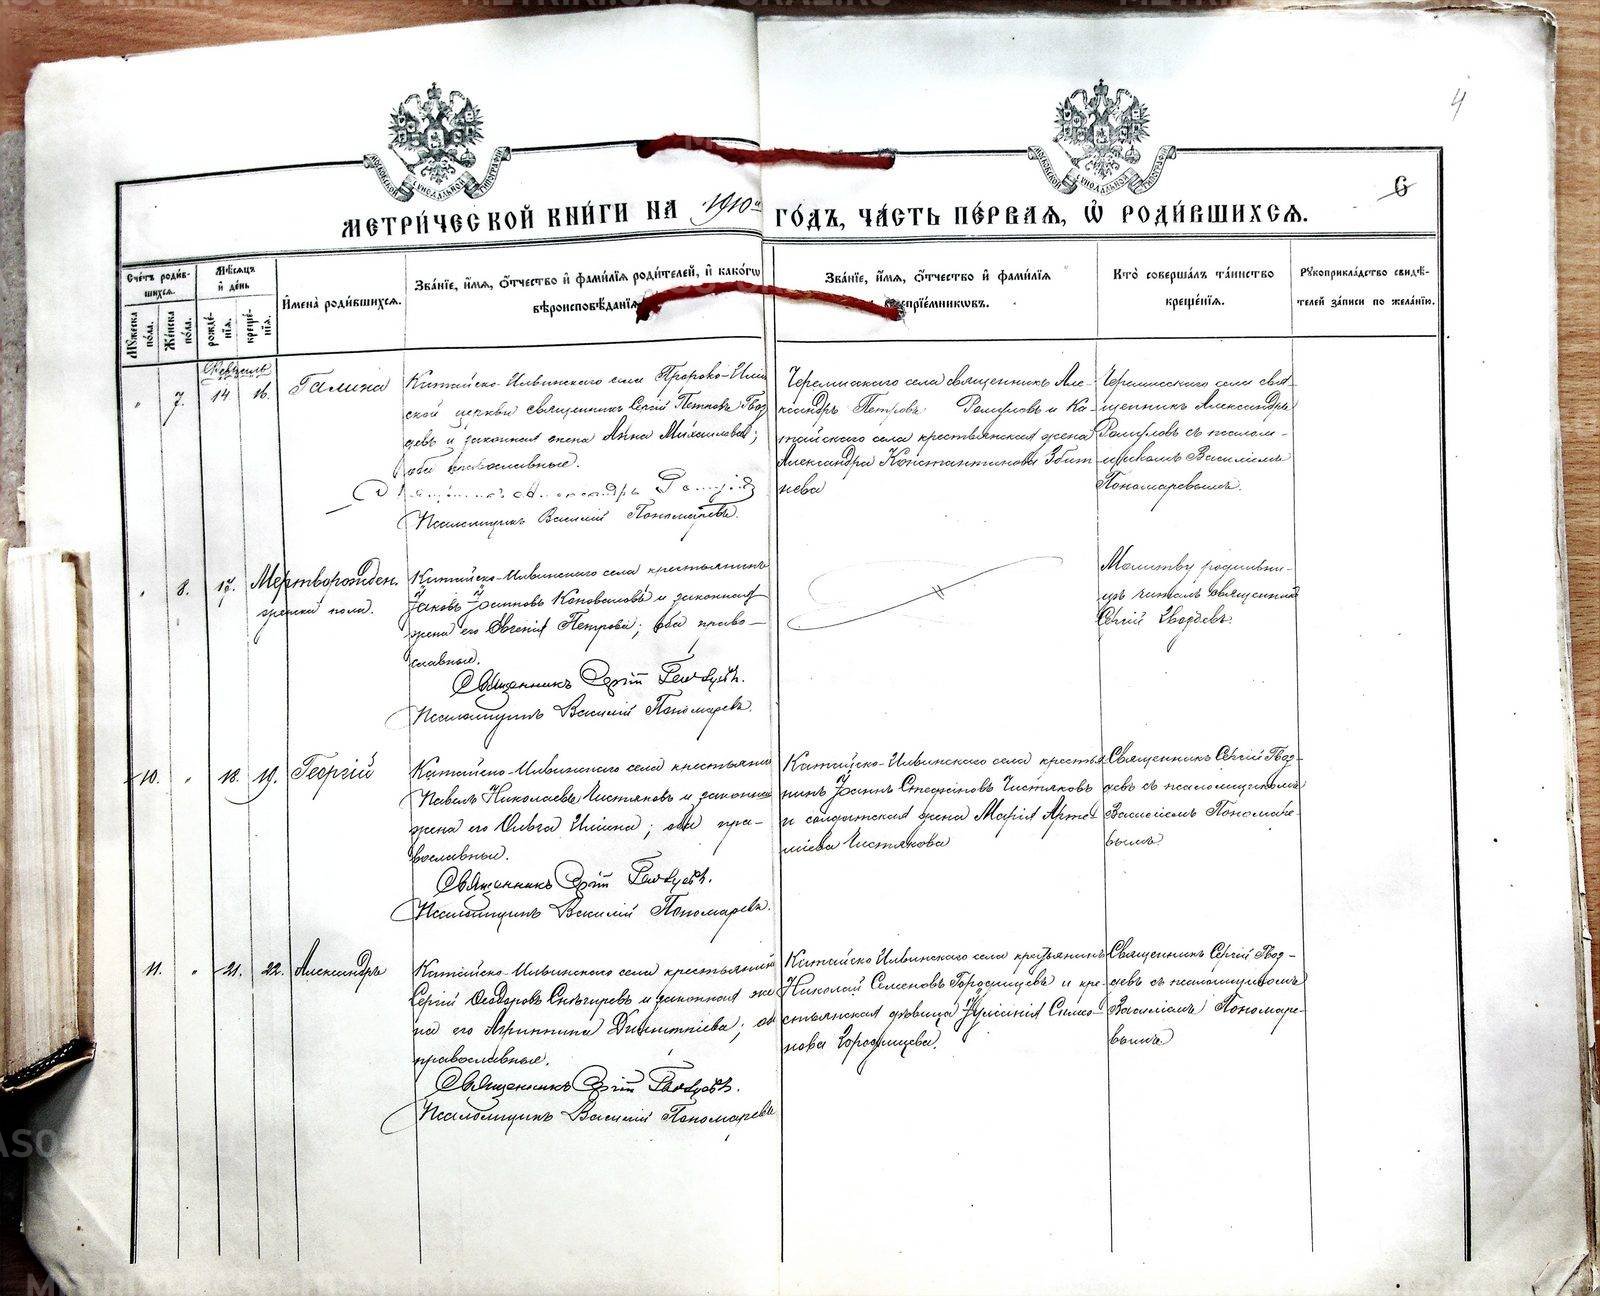 4
6
МЕТРИ́ЧЕСКОЙ КНИ́ГИ НА 1910й ГО́ДЪ, ЧА́СТЬ ПЕ́РВАѦ, Ѽ РОДИ́ВШИХСѦ.
Сче́тъ роди́вшихсѧ.
Мꙋ́жеска по́ла.
Же́нска по́ла.
Мѣ́сѧцъ и҆ де́нь
рожде́нїѧ.
креще́нїѧ.
И҆мена̀ роди́вшихсѧ.
Зва́нїе, и҆́мѧ, ѻ҆́тчество и҆ фами́лїѧ роди́телей, и҆ како́гѡ вѣроисповѣ́данїѧ
Зва́нїе, и҆́мѧ, ѻ҆́тчество и҆ фами́лїѧ воспрїе́мникѡвъ.
Кто̀ соверша́лъ та́инство креще́нїѧ.
Рꙋкоприкла́дство свидѣ́телей за́писи по жела́нїю.
Февраль
" 7. 14 16. Галина
Китайско-Ильинскаго села Пророко-Ильин
ской церкви священникъ Сергій Петровъ Гвоз
девъ и законная жена Анна Михаилова;
оба православные.
Священникъ Александръ Ромуловъ
Псаломщикъ Василій Пономаревъ.
Черемисскаго села священникъ Але-
ксандръ Петровъ Ромуловъ и Ки-
тайскаго села крестьянская жена
Александра Константинова Збит
нева
Черемисскаго села свя-
щенникъ Александръ
Ромуловъ съ псалом-
щикомъ Василіемъ
Пономаревымъ.
" 8. 17. Мертворожден.
женска пола.
Китайско-Ильинскаго села крестьянинъ
Іаковъ Іоанновъ Коноваловъ и законная
жена его Евгенія Петрова; оба право-
славные.
Священникъ Сергій Гвоздевъ.
Псаломщикъ Василій Пономаревъ.
Молитву родильни-
цѣ читалъ священникъ
Сергій Гвоздевъ.
10. " 18. 19. Георгій
Китайско-Ильинскаго села крестьянинъ
Павелъ Николаевъ Чистяковъ и законная
жена его Ольга Ильина; оба пра-
вославные.
Священникъ Сергій Гвоздевъ.
Псаломщикъ Василій Пономаревъ.
Китайско-Ильинскаго села крестья
нинъ Іоаннъ Стефановъ Чистяковъ
и солдатская жена Марія Арте
міева Чистякова
Священникъ Сергій Гвоз-
девъ съ псаломщикомъ
Василіемъ Пономаре-
вымъ.
11. " 21. 22. Александръ
Китайско-Ильинскаго села крестьянинъ
Сергій Ѳеодоровъ Снѣгиревъ и законная же
на его Агриппина Димитріева; оба
православные.
Священникъ Сергій Гвоздевъ.
Псаломщикъ Василій Пономаревъ
Китайско-Ильинскаго села крестьянинъ
Николай Семеновъ Городищевъ и кре-
стьянская дѣвица Іуліанія Симо-
нова Городищева.
Священникъ Сергій Гвоз-
девъ съ псаломщикомъ
Василіемъ Пономаре-
вымъ